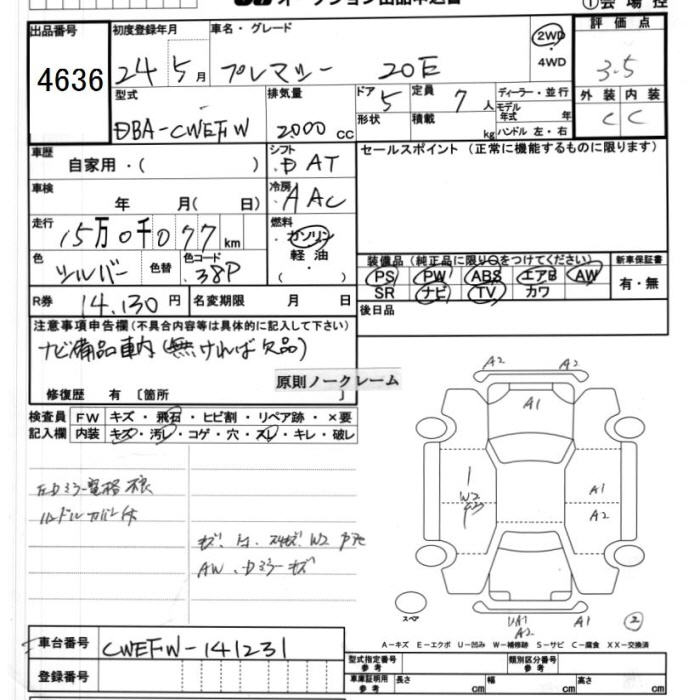 オークション出品申込書
①会場控
出品番号 初度登録年月 車名・グレード 2WD 評価点
4636 24年5月 プレマシー 20E ・4WD 3.5
型式 排気量 ドア 5 定員 7人 ディーラー・並行 外装 内装
DBA-CWEFW 2000cc 形状 積載 kg モデル年式 年 C C
ハンドル 左・右
車歴 自家用・( ) シフト DAT セールスポイント(正常に機能するものに限ります)
車検 年 月( 日) 冷房 AAC
走行 15万0千077km 燃料 ガソリン 軽油 ・( )
色 シルバー 色替 色コード 38P
装備品(純正品に限り○をつけてください) 新車保証書
PS PW ABS エアB AW 有・無
SR ナビ TV カワ
R券 14,130円 名変期限 月 日 後日品
注意事項申告欄(不具合内容等は具体的に記入して下さい)
ナビ備品車内(無ければ欠品)
原則ノークレーム
修復歴 有〔箇所 〕
検査員 FW キズ・飛石・ヒビ割・リペア跡・×要
記入欄 内装 キズ・汚レ・コゲ・穴・スレ・キレ・破レ
A2 A2
A1
W2
A1
A2
左Dミラー電格不良
ハンドルカバー付
AW、Dミラーキズ
スペア
A1
②
A-キズ E-エクボ U-凹み W-補修跡 S-サビ C-腐食 XX-交換済
車台番号 CWEFW-141231
登録番号
型式指定番号 参考 類別区分番号 参考
車庫証明用 参考 長さ cm 幅 cm 高さ cm